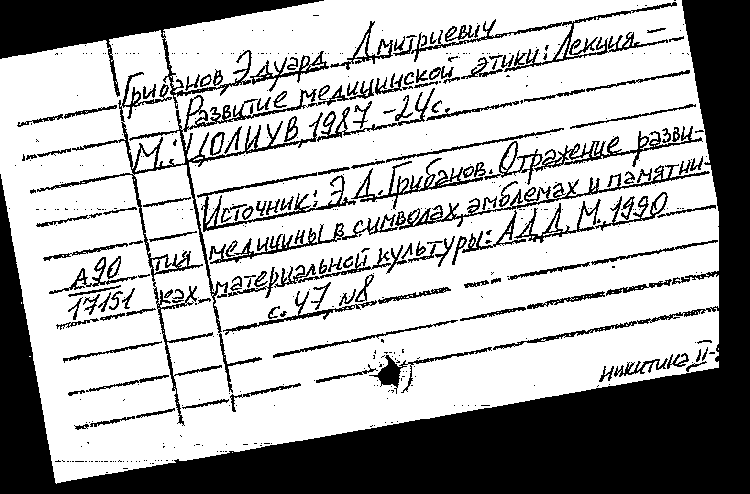 Грибанов, Эдуард Дмитриевич
Развитие медицинской этики: Лекция. –
М.: ЦОЛИУВ, 1987. – 24с.
Источник: Э.Д. Грибанов. Отражение разви-
тия медицины в символах, эмблемах и памятни-
ках материальной культуры: АД, Д. М., 1990
с. 47, №8
А90
17151
Никитина II-